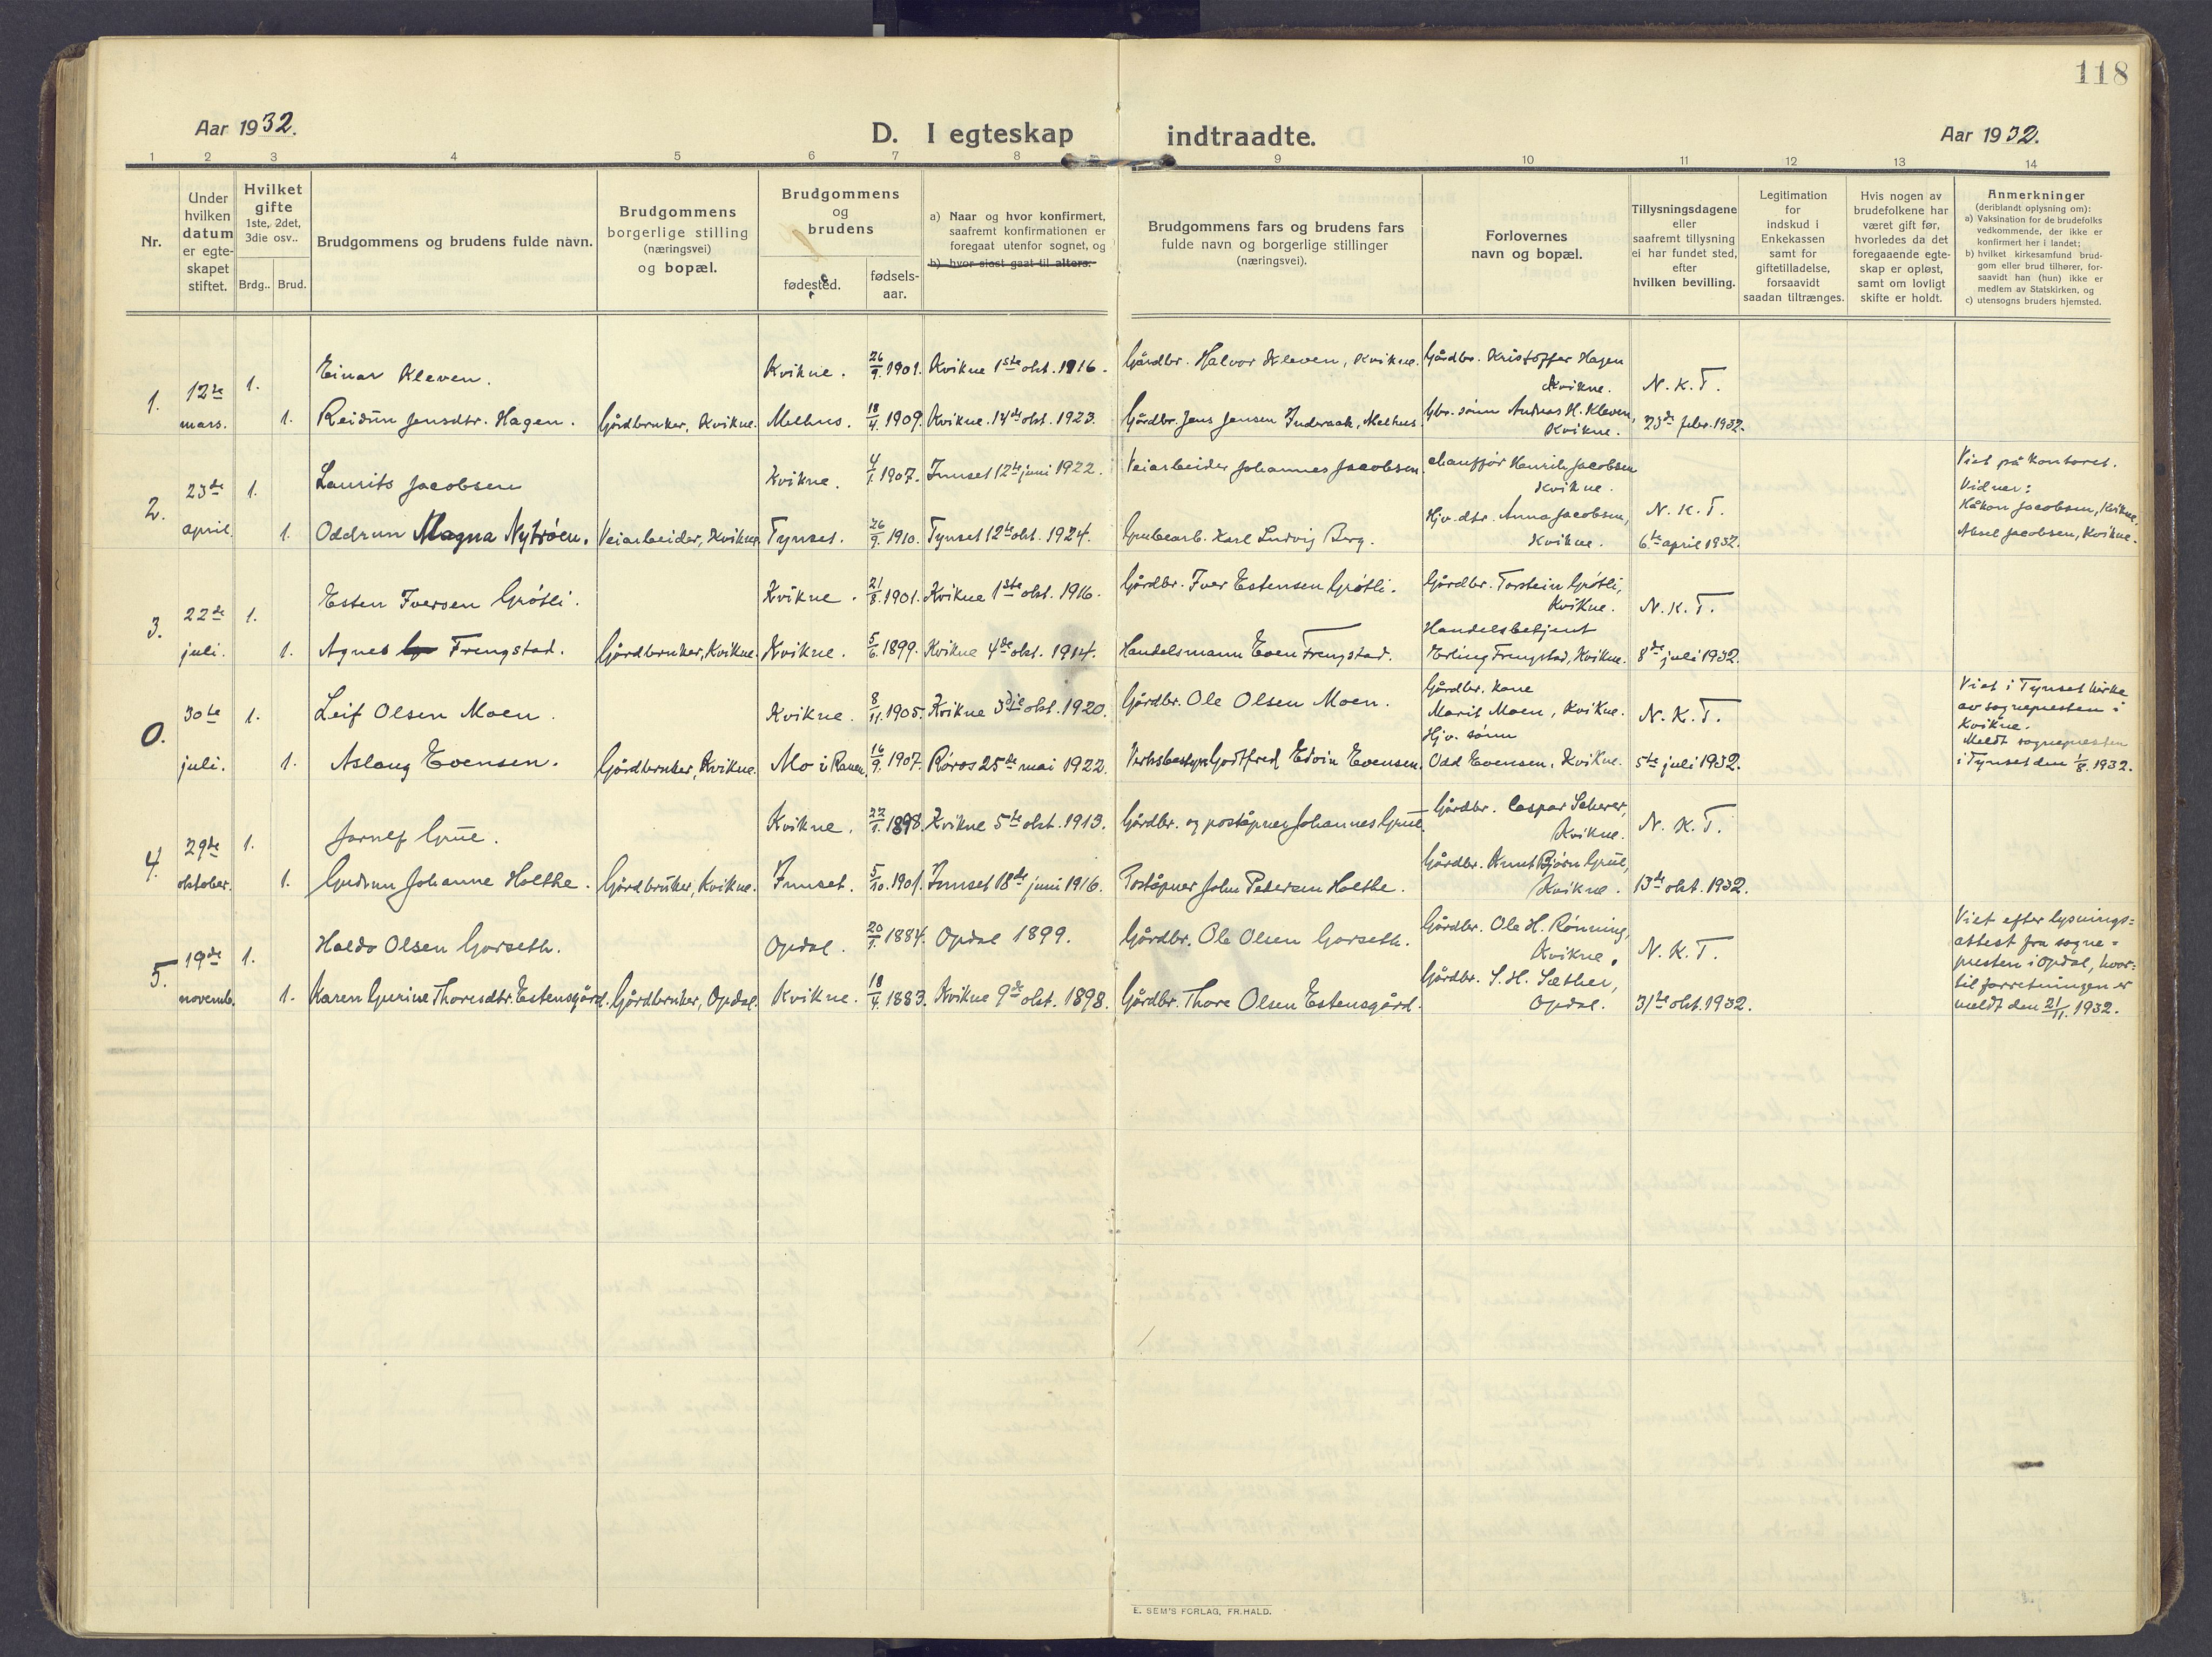 118
Aar 1932.
D. I egteskap indtraadte.
Aar 1932.
1 2 3 4 5 6 7 8 9 10 11 12 13 14
Nr.
Under
hvilken
datum
er egte-
skapet
stiftet.
Hvilket
gifte
1ste, 2det,
3die osv..
Brdg.. Brud.
Brudgommens og brudens fulde navn.
Brudgommens
borgerlige stilling
(næringsvei)
og bopæl.
Brudgommens
og
brudens
fødested.
fødsels-
aar.
a) Naar og hvor konfirmert,
saafremt konfirmationen er
foregaat utenfor sognet, og
b) hvor sidst gaat til alters.
Brudgommens fars og brudens fars
fulde navn og borgerlige stillinger
(næringsvei).
Forlovernes
navn og bopæl.
Tillysningsdagene
eller
saafremt tillysning
ei har fundet sted,
efter
hvilken bevilling.
Legitimation
for
indskud i
Enkekassen
samt for
giftetilladelse,
forsaavidt
saadan tiltrænges.
Hvis nogen av
brudefolkene har
været gift før,
hvorledes da det
foregaaende egte-
skap er opløst,
samt om lovligt
skifte er holdt.
Anmerkninger
(deriblandt oplysning om):
a) Vaksination for de brudefolks
vedkommende, der ikke er
konfirmert her i landet;
b) hvilket kirkesamfund brud-
gom eller brud tilhører, for-
saavidt han (hun) ikke er
medlem av Statskirken, og
c) utensogns bruders hjemsted.
1. 12te mars. 1.
Einar Kleven.
Kvikne. 26/9. 1901. Kvikne 1ste okt. 1916.
Gårdbr. Halvor Kleven, Kvikne.
Gårdbr. Kristoffer Hagen
Kvikne.
N. K. T.
1. Reidun Jensdtr. Hagen. Gårdbruker, Kvikne. Melhus. 18/4. 1909. Kvikne. 14de okt. 1923.
Gårdbr. Jens Jensen Inderaak, Melhus.
Gbr. sønn Andreas H. Kleven,
Kvikne.
23de febr. 1932.
2. 23de april. 1.
Laurits Jacobsen
Kvikne. 4/1. 1907. Innset 12te juni 1922.
Veiarbeider Johannes Jacobsen.
chauffør Henrik Jacobsen
Kvikne.
N. K. T.
1. Oddrun Magna Nytrøen. Veiarbeider, Kvikne. Tynset. 26/9. 1910. Tynset 12te okt. 1924.
Grubearb. Karl Ludvig Berg.
Hjv. dtr. Anna Jacobsen,
Kvikne.
6te april 1932.
Viet på kontoret.
Vidner:
Håkon Jacobsen, Kvikne.
Aksel Jacobsen, Kvikne.
3. 22de juli. 1.
Esten Iversen Grøtli.
Kvikne. 21/8. 1901. Kvikne 1ste okt. 1916.
Gårdbr. Iver Estensen Grøtli.
Gårdbr. Torstein Grøtli,
Kvikne.
N. K. T.
1. Agnes Frengstad. Gårdbruker, Kvikne. Kvikne. 5/6. 1899. Kvikne 4de okt. 1914.
Handelsmann Even Frengstad.
Handelsbetjent
Erling Frengstad, Kvikne.
8de juli 1932.
0. 30te juli. 1.
Leif Olsen Moen.
Kvikne. 8/11. 1905. Kvikne 3dje okt. 1920.
Gårdbr. Ole Olsen Moen.
Gårdbr. kone
Marit Moen, Kvikne.
N. K. T.
1. Aslaug Evensen. Gårdbruker, Kvikne. Mo i Ranen. 16/9. 1907. Røros 25de mai 1922.
Verksbestyrer Godtfred Edvin Evensen.
Hjv. sønn
Odd Evensen, Kvikne.
5te juli 1932.
Viet i Tynset kirke
av sognepresten i
Kvikne.
Meldt sognepresten
i Tynset den 1/8. 1932.
4. 29de oktober. 1.
Jarnlf Grue.
Kvikne. 22/1. 1898. Kvikne 5te okt. 1913.
Gårdbr. og poståpner Johannes Grue.
Gårdbr. Caspar Scherer,
Kvikne.
N. K. T.
1. Gudrun Johanne Holthe. Gårdbruker, Kvikne. Innset. 5/10. 1901. Innset 18de juni 1916.
Poståpner John Pedersen Holthe.
Gårdbr. Knut Bjørn Grue,
Kvikne.
13de okt. 1932.
5. 19de novemb. 1.
Haldo Olsen Gorseth.
Opdal. 20/1. 1884. Opdal 1899.
Gårdbr. Ole Olsen Gorseth.
Gårdbr. Ole H. Rønning,
Kvikne.
N. K. T.
1. Karen Gurine Thoresdtr. Estensgård. Gårdbruker, Opdal. Kvikne. 18/4. 1883. Kvikne 9de okt. 1898.
Gårdbr. Thore Olsen Estensgård.
Gårdbr. S. H. Sæther,
Opdal.
31te okt. 1932.
Viet efter lysnings=
attest fra sogne=
presten i Opdal, hvor=
til forretningen er
meldt den 21/11. 1932.
E. SEM'S FORLAG, FR.HALD.